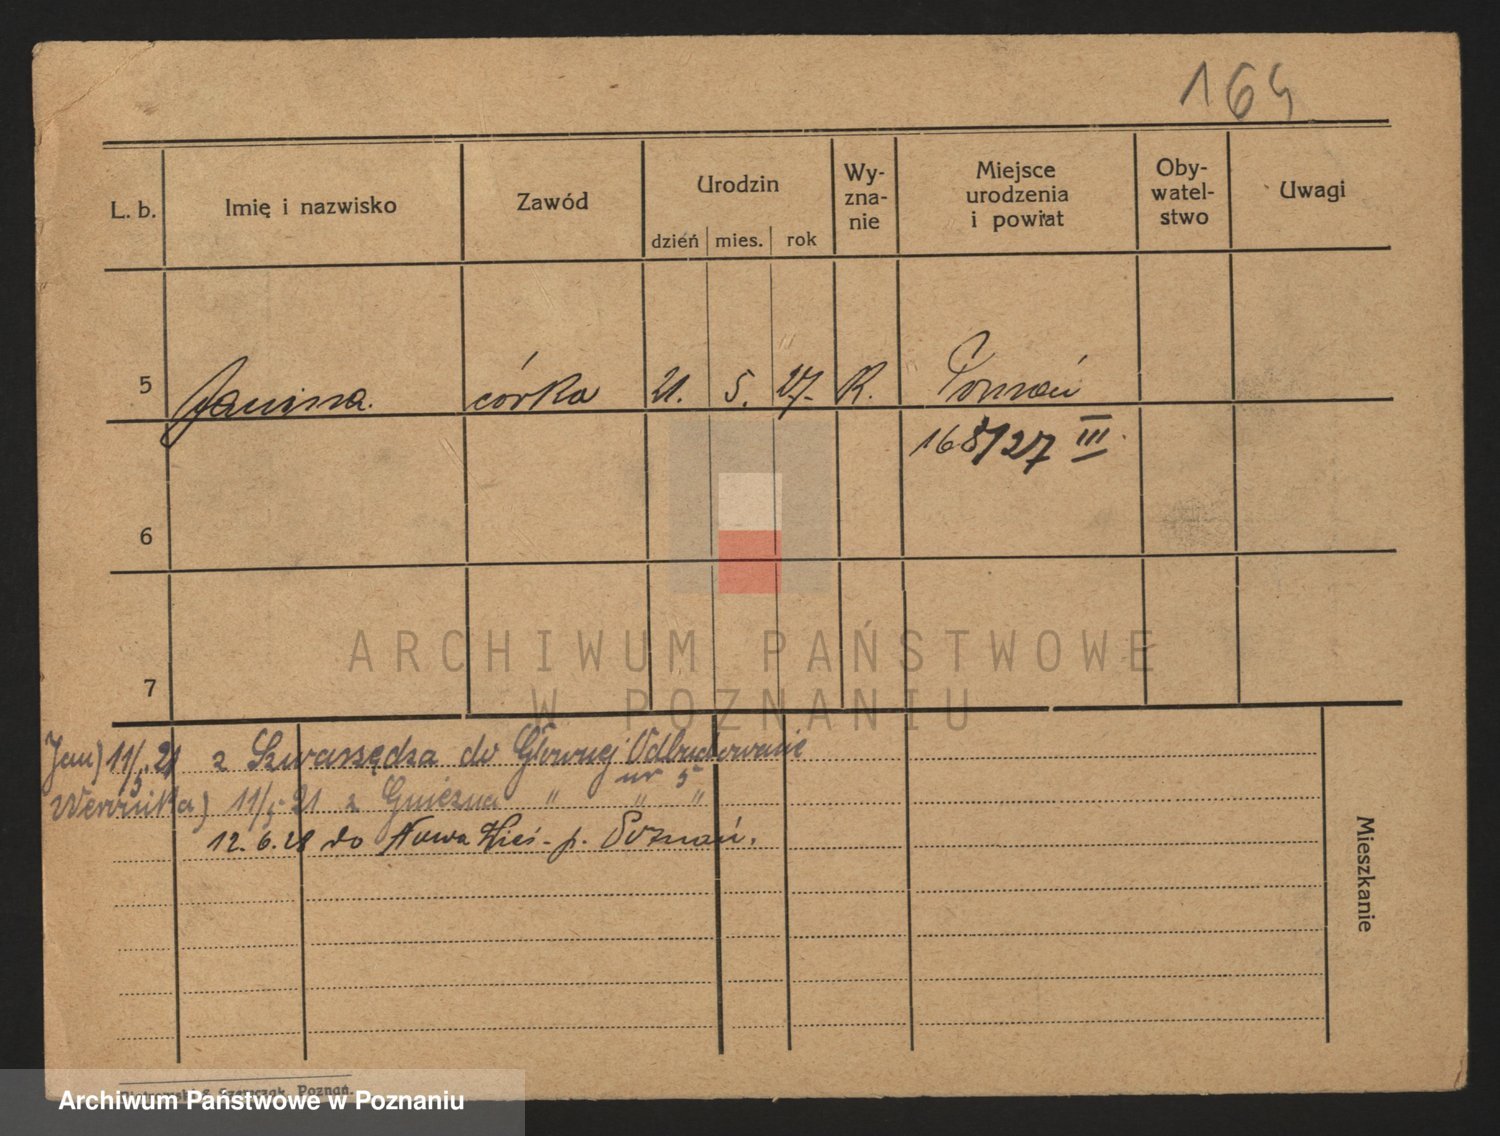 164
L. b. Imię i nazwisko Zawód Urodzin dzień mies. rok Wy-zna-nie Miejsce urodzenia i powiat Oby-watel-stwo Uwagi
5 Janina. córka 21. 5. 27. R. Poznań
168/27 III.
6
7
Jan) 11/5. 21 z Szwarsędza do Głownej Odbudowanie
nr 5
Weronika) 11/5 21 z Gniezna " " "
12.6.28 do Nowa Wieś - p. Poznań.
Mieszkanie
ARCHIWUM PAŃSTWOWE
W POZNANIU
Szewczak, Poznań.
Archiwum Państwowe w Poznaniu